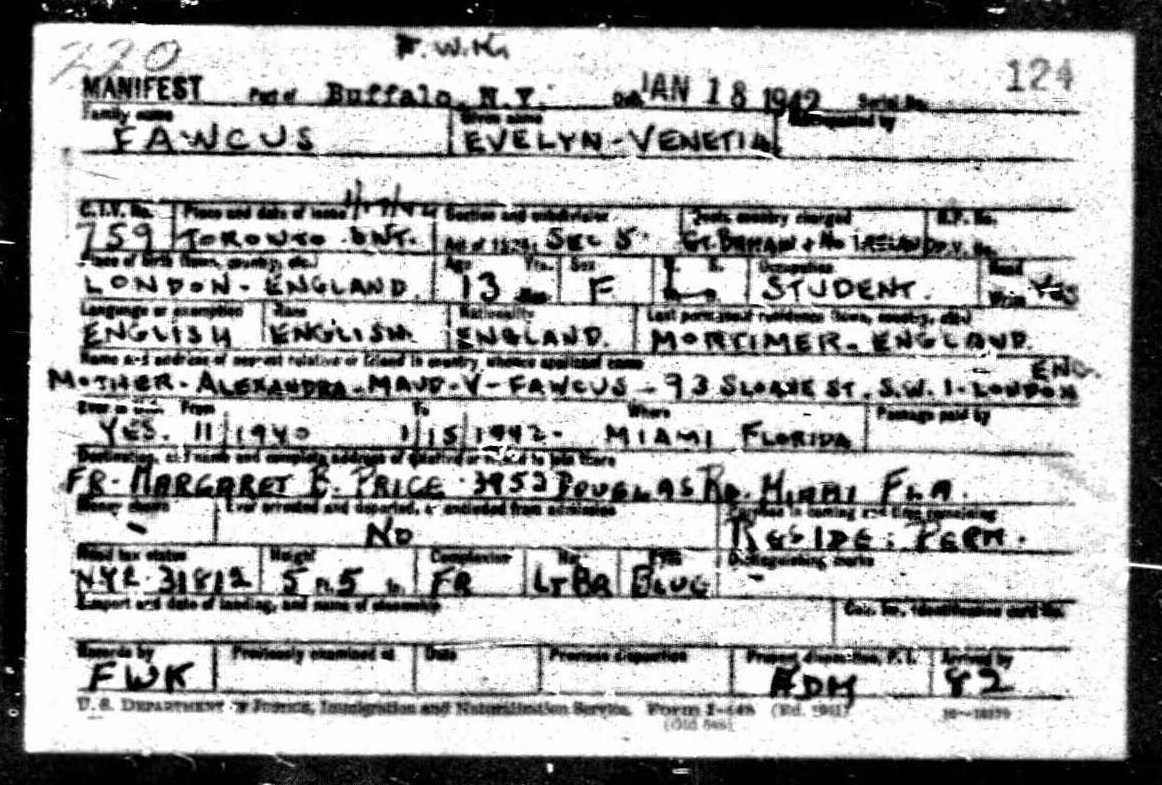 220 F. W. K. 124
MANIFEST Port of Buffalo, N. Y. Date JAN 18 1942 Serial No.
Family name Given name Accompanied by
FAWCUS EVELYN-VENETIA
C.I.V. No. Place and date of issue Section and subdivision Quota country charged R.P. No.
759 TORONTO. ONT. Act of 1924, SEC 5 GT. BRITAIN & NO IRELAND P.V. No.
Place of birth (town, country, etc.) Age Yrs. Sex Occupation Read
LONDON - ENGLAND. 13 F STUDENT. Write YES
Language or exemption Race Nationality Last permanent residence (town, country, etc.)
ENGLISH ENGLISH. ENGLAND. MORTIMER - ENGLAND.
Name and address of nearest relative or friend in country whence applicant came
ENG.
MOTHER - ALEXANDRA - MAUD - V - FAWCUS - 93 SLOANE ST. S.W. 1 - LONDON
Ever in U.S. From To Where Passage paid by
YES. 11/1940 1/15/1942 - MIAMI FLORIDA
Destination, and name and complete address of relative or friend to join there
FR - MARGARET B. PRICE - 3953 DOUGLAS RD. MIAMI FLA.
Money shown Ever arrested and deported, or excluded from admission Purpose in coming and time remaining
- NO RESIDE : PERM.
Head tax status Height Complexion Hair Eyes Distinguishing marks
NYR - 31812 5 ft. 5 in. FR LT BR BLUE -
Seaport and date of landing, and name of steamship
Records by Previously examined at Date Previous disposition Present disposition, P. I. Arrived by
FWK ADM 82
U. S. DEPARTMENT OF JUSTICE, Immigration and Naturalization Service. Form I-448 (Ed. 1941)
(Old 548)